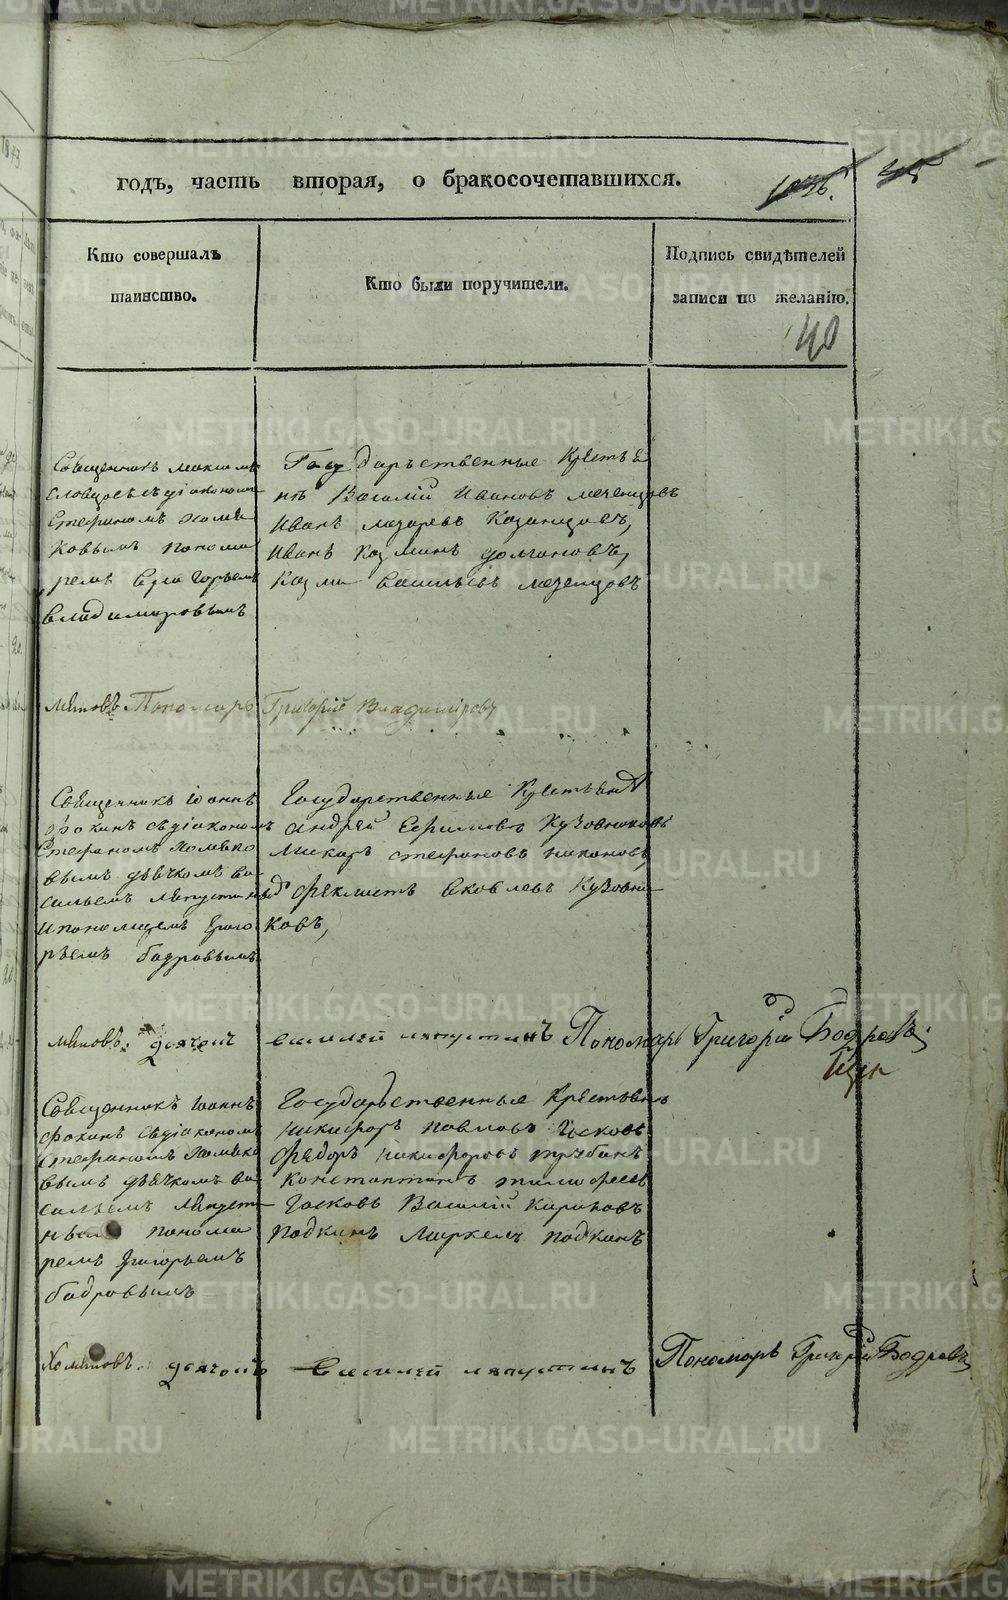 годъ, часть вторая, о бракосочетавшихся.
Кто совершалъ
таинство.
Кто были поручители.
Подпись свидѣтелей
записи по желанію.
40
Священникъ
Словцовъ съ діакономъ
Стефаномъ Хомя
ковымъ понома
ремъ Григорьемъ
Владимировымъ
Государьственные Крестья
не Василий Ивановъ мезенцовъ
Иванъ лазаревъ Казанцовъ,
Иванъ Козминъ долгановъ,
Козма васильевъ мезенцовъ
Пономарь Григорій Владиміровъ
Священникъ Іоаннъ
фокинъ съ діакономъ
Стефаномъ Хомяко
вымъ дьячкомъ Ва
сильемъ
и пономаремъ Григо
рьемъ бодровымъ
Государственные Крестьяне
андрей Ефимовъ Кузовниковъ
Макаръ стефановъ никоновъ,
феклистъ яковлевъ Кузовни
ковъ,
василей ляпустинъ Пономарь Григорій Бодровъ
Священникъ Іоаннъ
фокинъ съ діакономъ
Стефаномъ Хомяко
вымъ дьячкомъ Ва
сильемъ Ляпусти
нымъ понома
ремъ Григорьемъ
бодровымъ
Государьственные Крестьяне
никифоръ павловъ
федоръ никифоровъ
константинъ тимофеевъ
Василій
подкинъ Маркелъ подкинъ
Хомяковъ. василей ляпустинъ Пономарь Григорій Бодровъ
METRIKI.GASO-URAL.RU